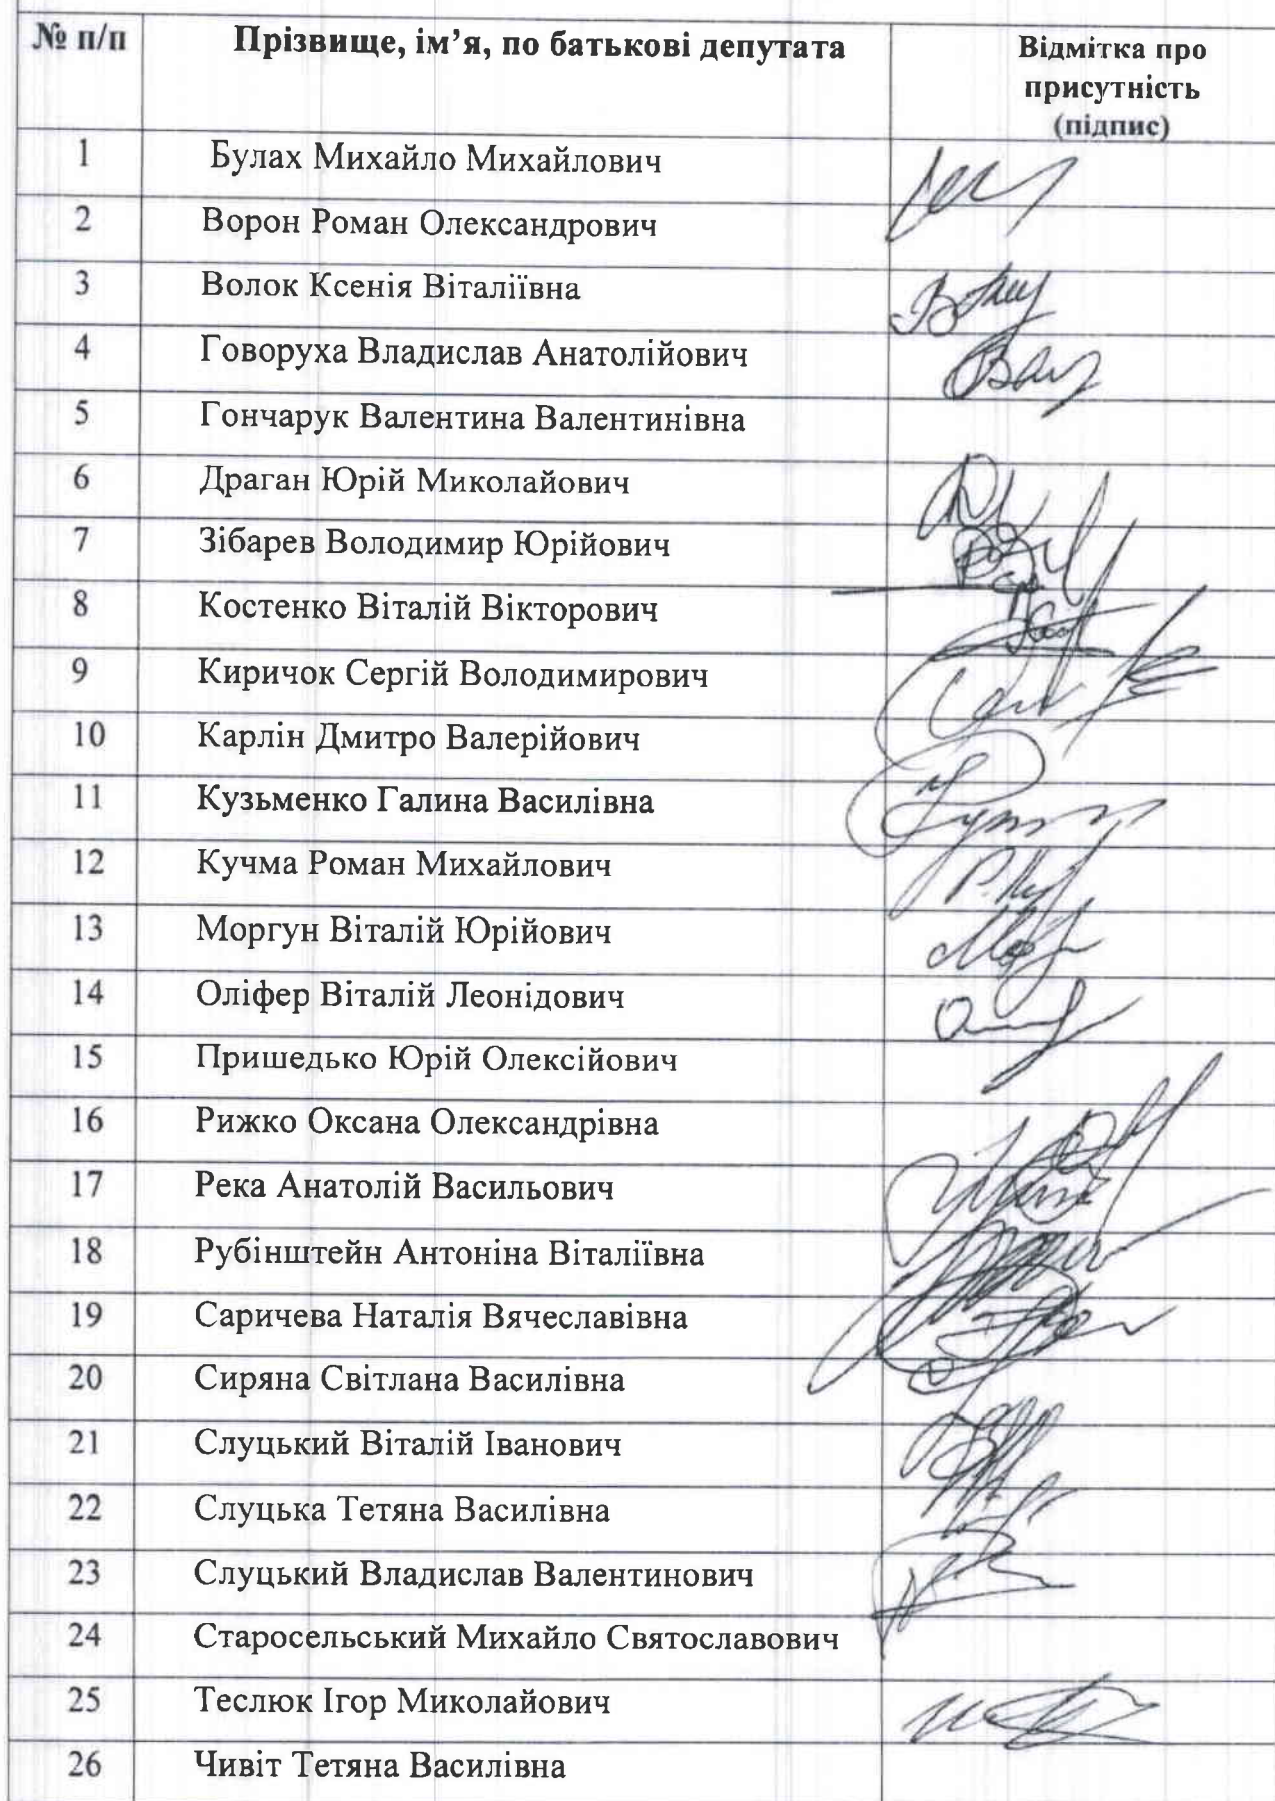 № п/п Прізвище, ім’я, по батькові депутата Відмітка про
присутність
(підпис)
1 Булах Михайло Михайлович
2 Ворон Роман Олександрович
3 Волок Ксенія Віталіївна
4 Говоруха Владислав Анатолійович
5 Гончарук Валентина Валентинівна
6 Драган Юрій Миколайович
7 Зібарев Володимир Юрійович
8 Костенко Віталій Вікторович
9 Киричок Сергій Володимирович
10 Карлін Дмитро Валерійович
11 Кузьменко Галина Василівна
12 Кучма Роман Михайлович
13 Моргун Віталій Юрійович
14 Оліфер Віталій Леонідович
15 Пришедько Юрій Олексійович
16 Рижко Оксана Олександрівна
17 Река Анатолій Васильович
18 Рубінштейн Антоніна Віталіївна
19 Саричева Наталія Вячеславівна
20 Сиряна Світлана Василівна
21 Слуцький Віталій Іванович
22 Слуцька Тетяна Василівна
23 Слуцький Владислав Валентинович
24 Старосельський Михайло Святославович
25 Теслюк Ігор Миколайович
26 Чивіт Тетяна Василівна